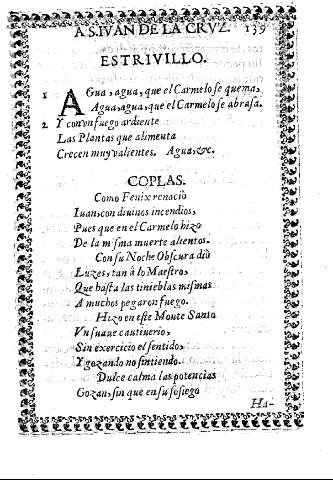 A S. IVAN DE LA CRVZ. 139
ESTRIVILLO.
1 AGua, agua, que el Carmelo se quema,
Agua, agua, que el Carmelo se abrasa.
2. Y con vn fuego ardiente
Las Plantas que alimenta
Crecen muy valientes. Agua, &c.
COPLAS.
Como Fenix renaciò
Iuan, con diuinos incendios,
Pues que en el Carmelo hizo
De la misma muerte alientos.
Con su Noche Obscura diò
Luzes, tan à lo Maestro,
Que hasta las tinieblas mismas
A muchos pegaron fuego.
Hizo en este Monte Santo
Vn suaue cautiuerio,
Sin exercicio el sentido,
Y gozando no sintiendo.
Dulce calma las potencias
Gozan, sin que en su sosiego
Ha-